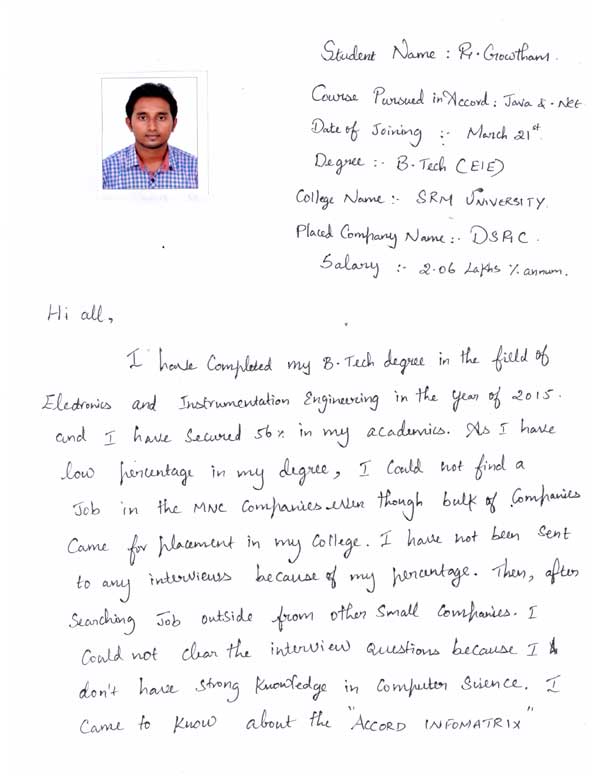 Student Name : R. Gowtham.
Course Pursued in Accord : Java & .Net
Date of Joining :- March 21st.
Degree :- B.Tech (EIE)
College Name :- SRM UNIVERSITY.
Placed Company Name :- DSRC.
Salary :- 2.06 Lakhs % annum.
Hi all,
I have Completed my B.Tech degree in the field of
Electronics and Instrumentation Engineering in the year of 2015.
and I have Secured 56% in my academics. As I have
low percentage in my degree, I Could not find a
Job in the MNC Companies even though bulk of Companies
Came for placement in my College. I have not been Sent
to any interviews because of my percentage. Then, after
Searching Job outside from other Small Companies. I
Could not clear the interview Questions because I
don't have Strong Knowledge in Computer Science. I
Came to Know about the "ACCORD INFOMATRIX"